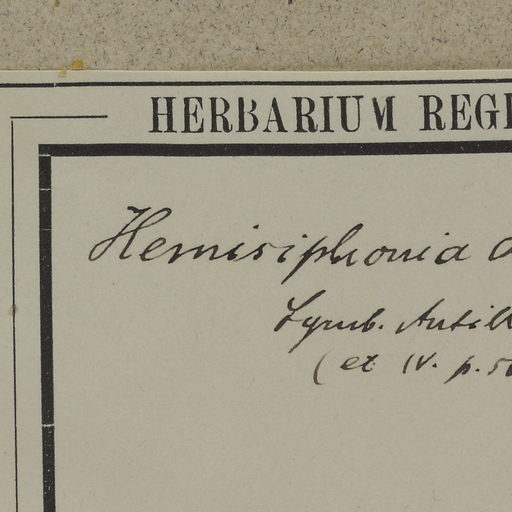 HERBARIUM REGI
Hemisiphonia
Symb. Antill
(et IV. p. 50